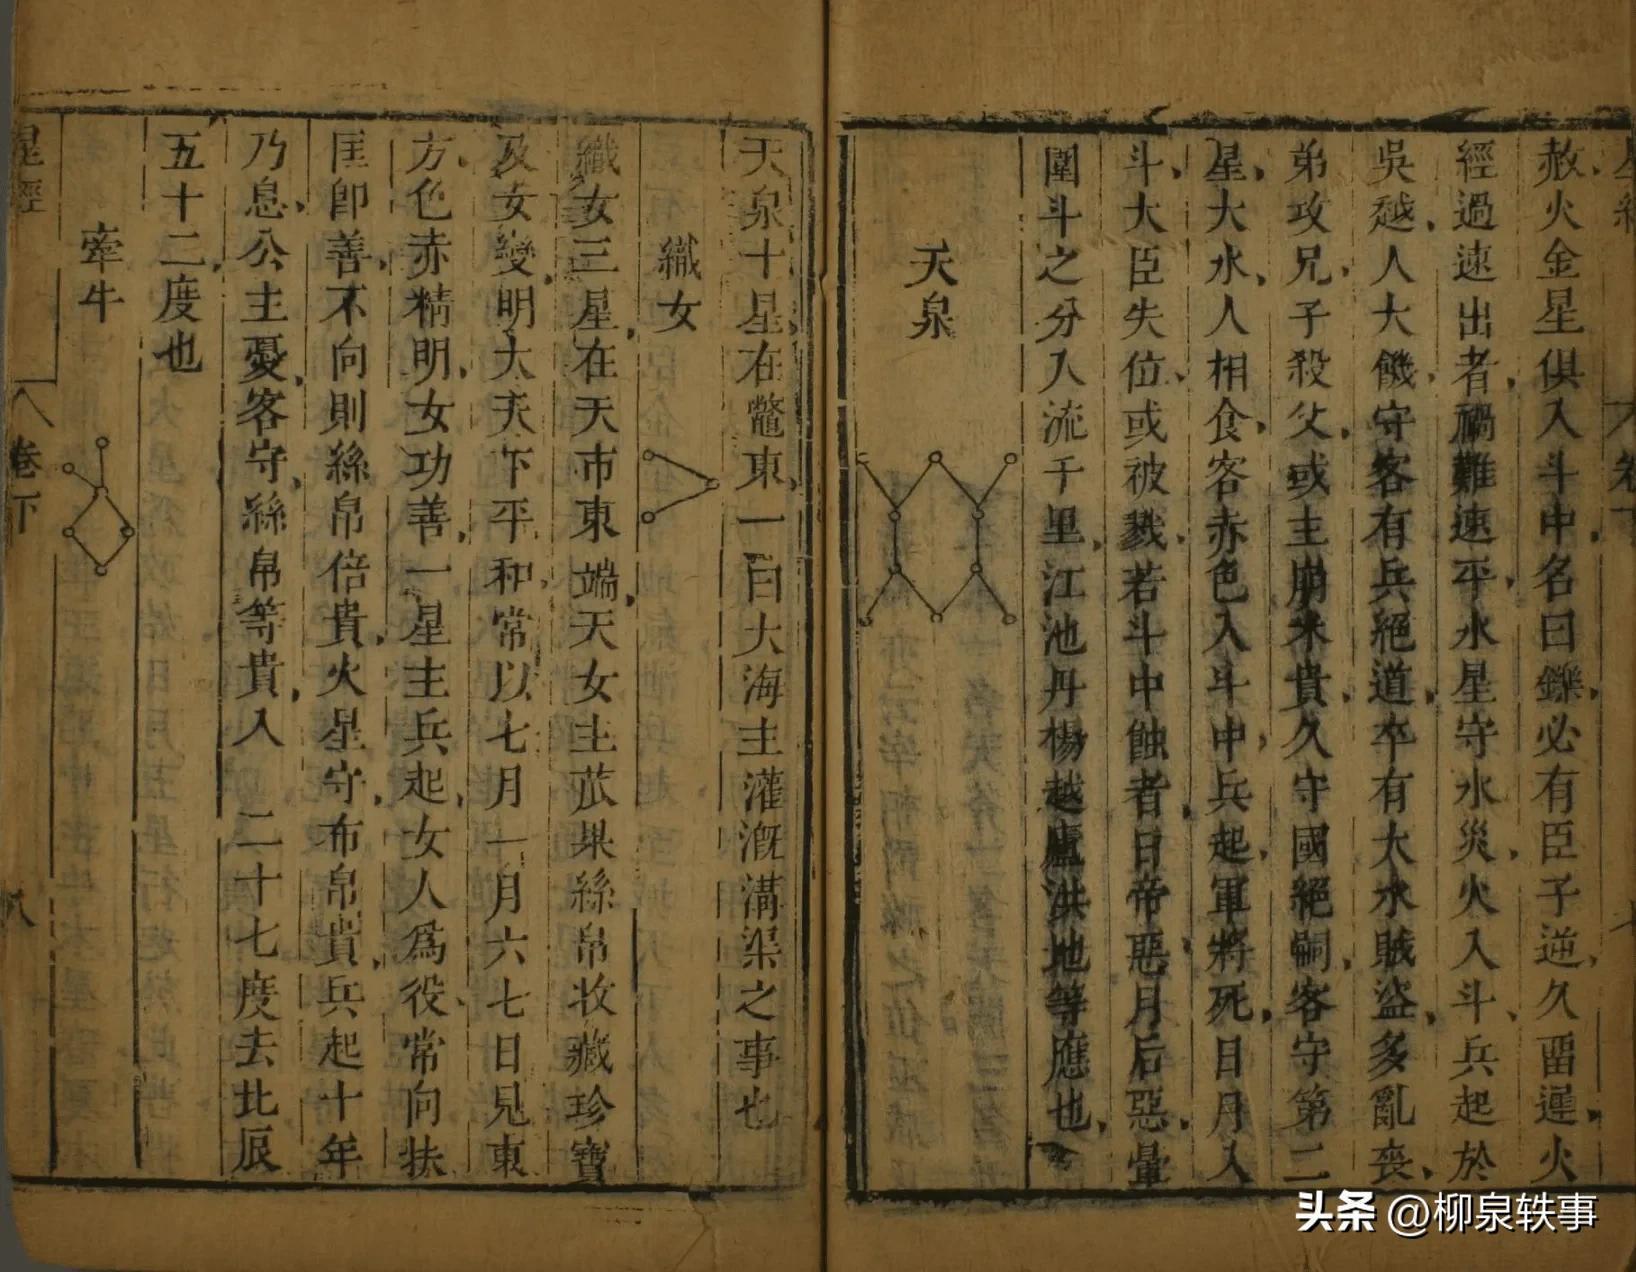 赦火金星俱入斗中名曰鑠必有臣子逆久畱遲火
經過速出者禍難速平水星守水災火入斗兵起於
吳越人大饑守客有兵絕道卒有大水賊盜多亂喪
弟攻兄子殺父或主崩米貴久守國絕嗣客守第二
星大水人相食客赤色入斗中兵起軍將死日月入
斗大臣失位或被戮若斗中蝕者日帝惡月后惡暈
圍斗之分人流千里江池丹楊越廬洪地等應也
天泉
天泉十星在鼈東一曰大海主灌溉溝渠之事也
織女
織女三星在天市東端天女主苽果絲帛收藏珍寶
及女變明大天下平和常以七月一月六七日見東
方色赤精明女功善一星主兵起女人為役常向扶
匡即善不向則絲帛倍貴火星守布帛貴兵起十年
乃息公主憂客守絲帛等貴入 二十七度去北辰
五十二度也
牽牛
星經
卷下
八
头条 @柳泉轶事